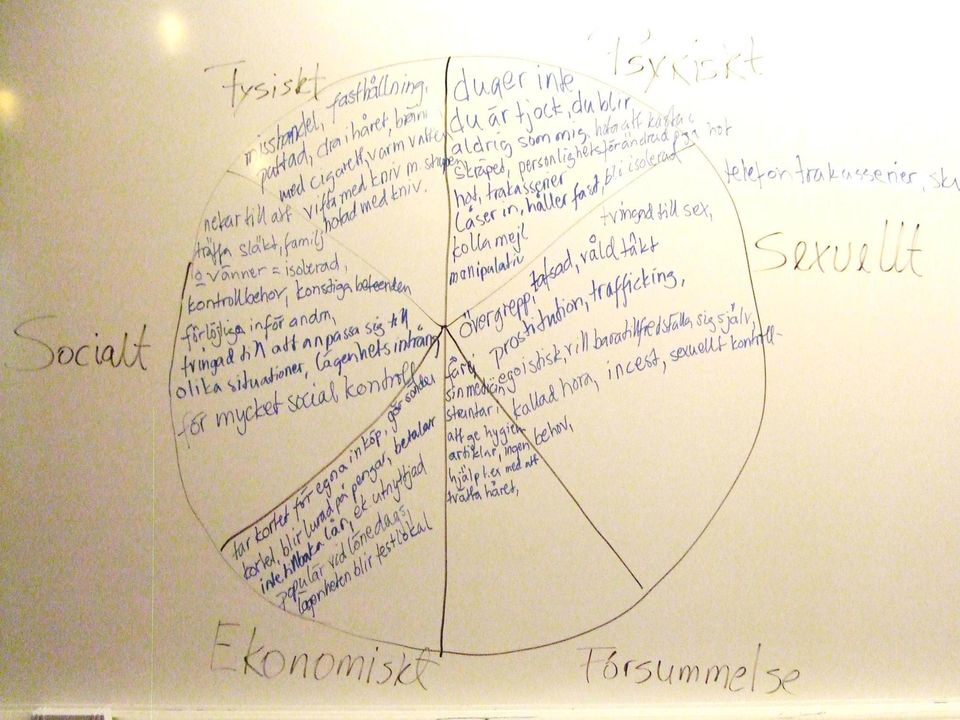 Fysiskt
misshandel, fasthållning,
puttad, dra i håret, bränn
med cigarett, varm vatten
vifta med kniv m. strypen
hotad med kniv.
Psykiskt
duger inte
du är tjock, du blir
aldrig som mig, hota att kasta i
skräpet, personlighetsförändrad pga hot
hot, trakasserier
låser in, håller fast, bli isolerad
kolla mejl
manipulativ
telefontrakasserier,
Sexuellt
tvingad till sex,
övergrepp, tafsad, våld täkt
prostitution, trafficking,
egoistisk, vill bara tillfredsfälla sig själv,
kallad hora, incest, sexuellt kontroll-
behov,
Socialt
nekar till att
träffa släkt, familj
o vänner = isolerad,
kontrollbehov, konstiga beteenden
förlöjliga inför andra,
tvingad till att anpassa sig till
olika situationer, lägenhetsintrång
för mycket social kontroll
Ekonomiskt
tar kortet för egna inköp, gör sönder
kortet, blir lurad på pengar, betalar
inte tillbaka lån, ek utnyttjad
populär vid lönedags,
lägenheten blir festlokal
Försummelse
får ej
sin medicin
struntar i
att ge hygien
artiklar, ingen
hjälp t.ex med att
tvätta håret,